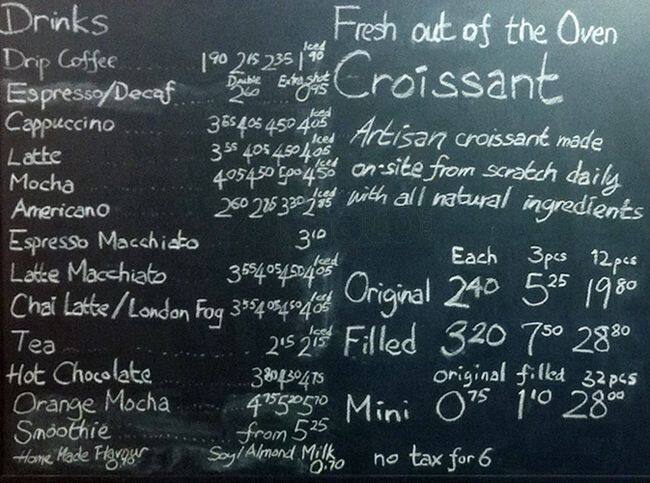 Drinks
Drip Coffee 1 90 2 15 2 35 Iced 1 90
Double Extra shot
Espresso/Decaf 2 60 0 95
Cappuccino 3 55 4 05 4 50 Iced 4 05
Latte 3 55 4 05 4 50 Iced 4 05
Mocha 4 05 4 50 5 00 Iced 4 50
Americano 2 60 2 85 3 30 Iced 2 85
Espresso Macchiato 3 10
Latte Macchiato 3 55 4 05 4 50 Iced 4 05
Chai Latte/London Fog 3 55 4 05 4 50 Iced 4 05
Tea 2 15 Iced 2 15
Hot Chocolate 3 80 4 30 4 75
Orange Mocha 4 75 5 20 5 70
Smoothie from 5 25
Home Made Flavour 0.90 Soy/Almond Milk 0.70
Fresh out of the Oven
Croissant
Artisan croissant made
on-site from scratch daily
with all natural ingredients
Each 3pcs 12pcs
Original 2 40 5 25 19 80
Filled 3 20 7 50 28 80
original filled 32pcs
Mini 0 75 1 10 28 00
no tax for 6